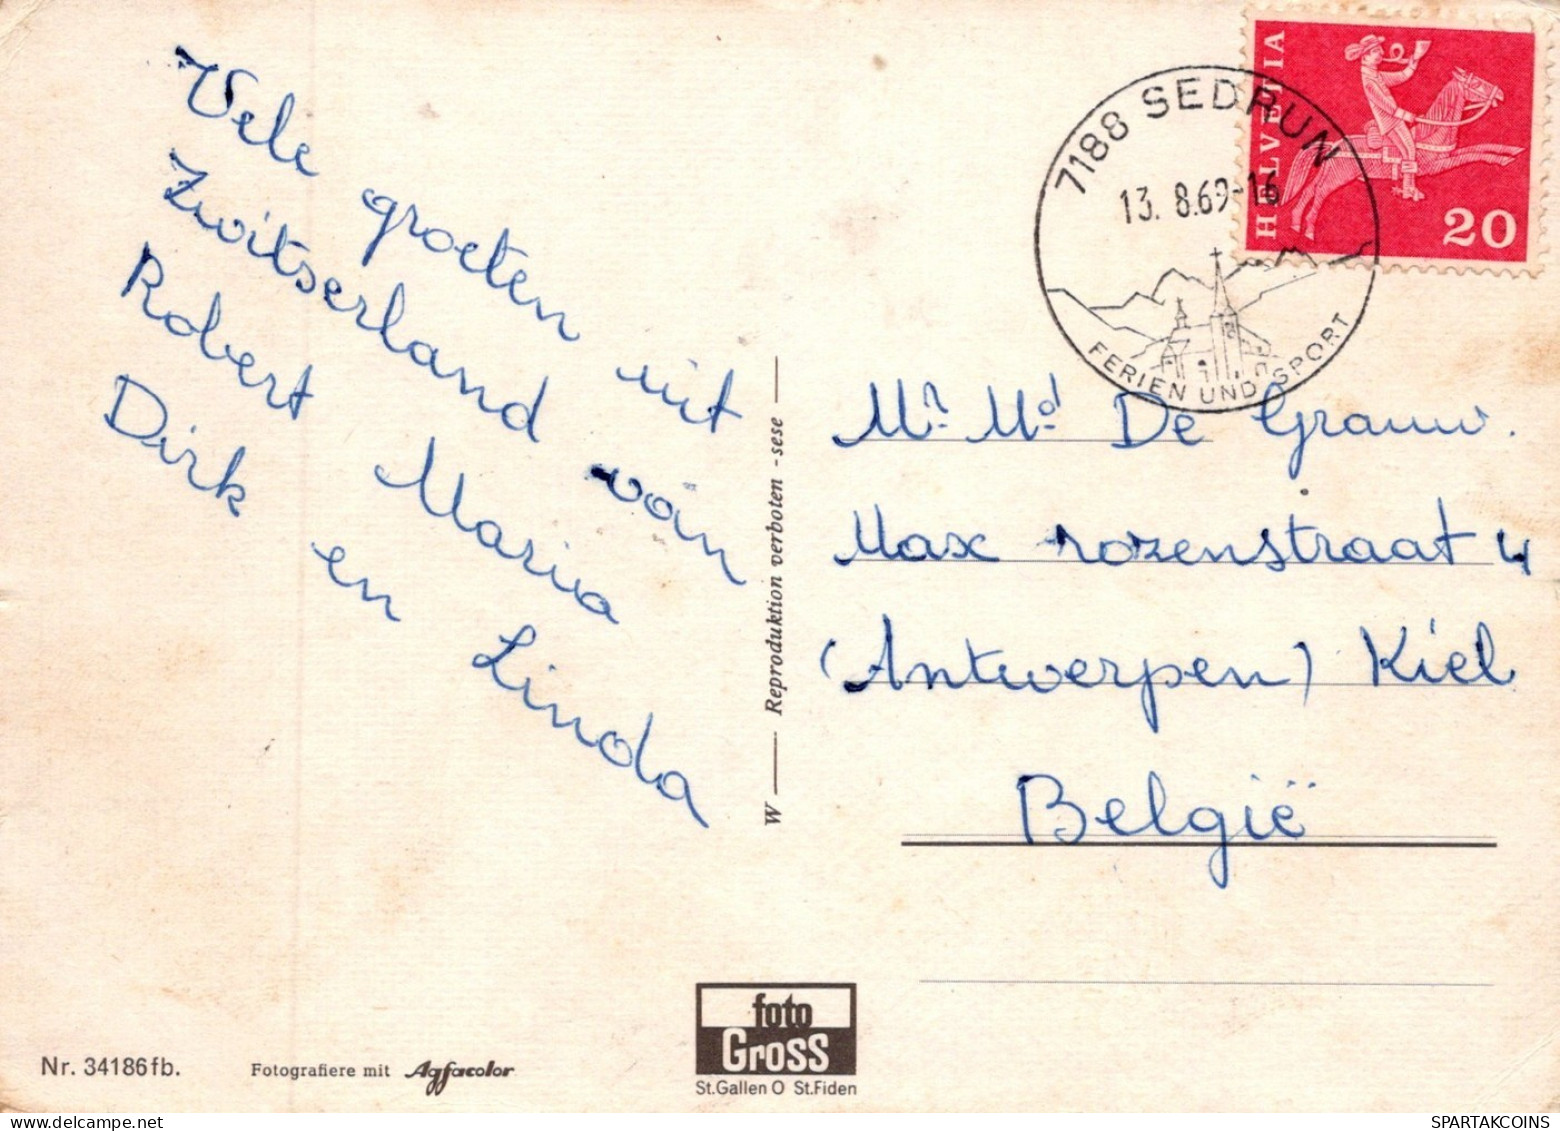 Vele groeten uit
Zwitserland van
Robert Maria
Dirk en Linda
W — Reproduktion verboten - sese —
7188 SEDRUN
13. 8.69-16
FERIEN UND SPORT
HELVETIA
20
Mr. Md De Grauw.
Max rozenstraat 4
(Antwerpen) Kiel
België
Nr. 34186fb.
Fotografiere mit Agfacolor
foto
Gross
St.Gallen O St.Fiden
SPARTAKCOINS